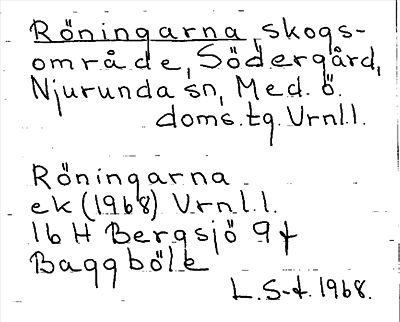 Röningarna, skogs-
område, Södergård,
Njurunda sn, Med. ö.
doms.tg. Vrnl.l.
Röningarna
ek (1968) Vrnl.l.
16 H Bergsjö 9f
Baggböle
L. S-t. 1968.